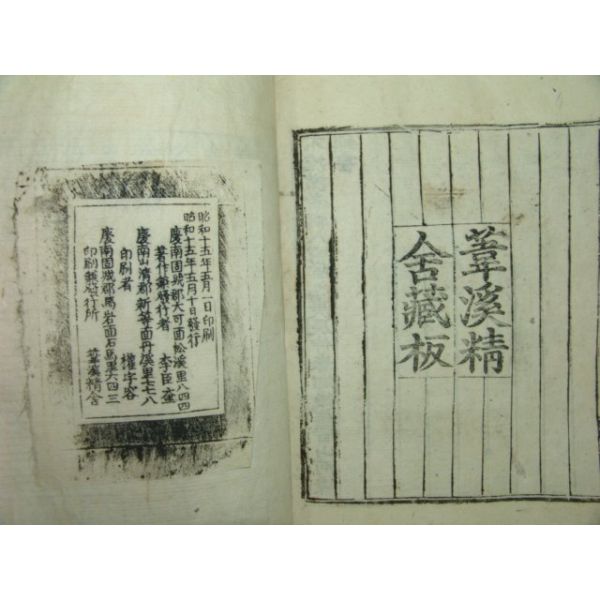 葦溪精
舍藏板
昭和十五年五月一日印刷
昭和十五年五月十日發行
慶南固城郡大可面松溪里八四四
著作兼發行者
慶南山淸郡新等面丹溪里七七八
印刷者
慶南固城郡馬岩面石馬里六四三
印刷兼發行所 葦溪精舍